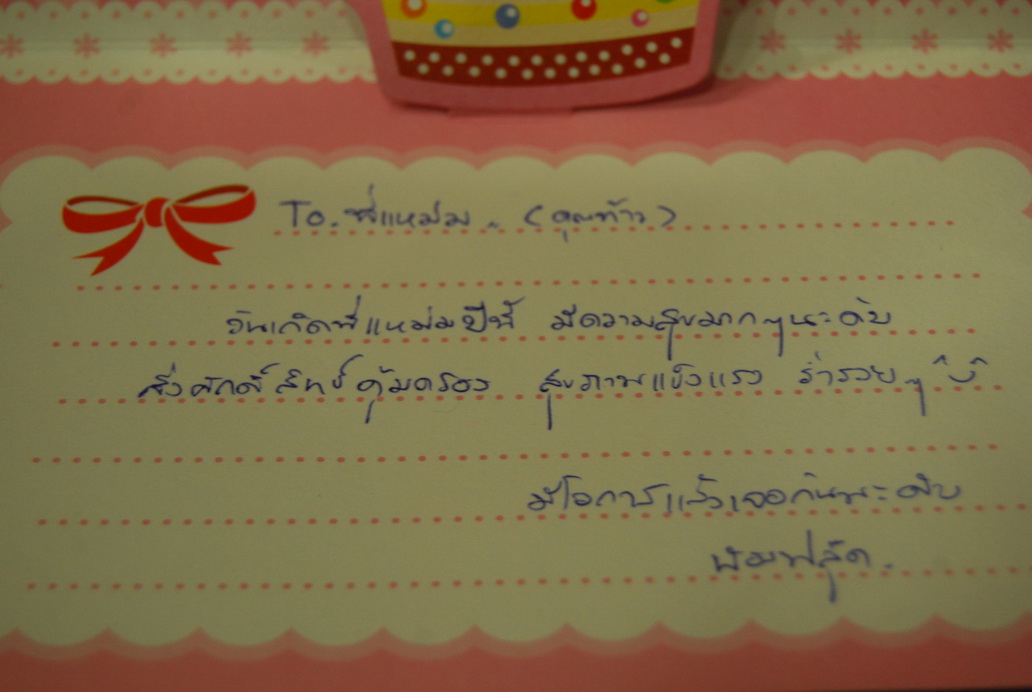 To. พี่แหม่ม.. (คุณท้าว)
วันเกิดพี่แหม่มปีนี้ มีความสุขมากๆนะครับ
สิ่งศักดิ์สิทธิ์คุ้มครอง สุขภาพแข็งแรง ร่ำรวยๆ
มีโอกาสแล้วเจอกันนะครับ